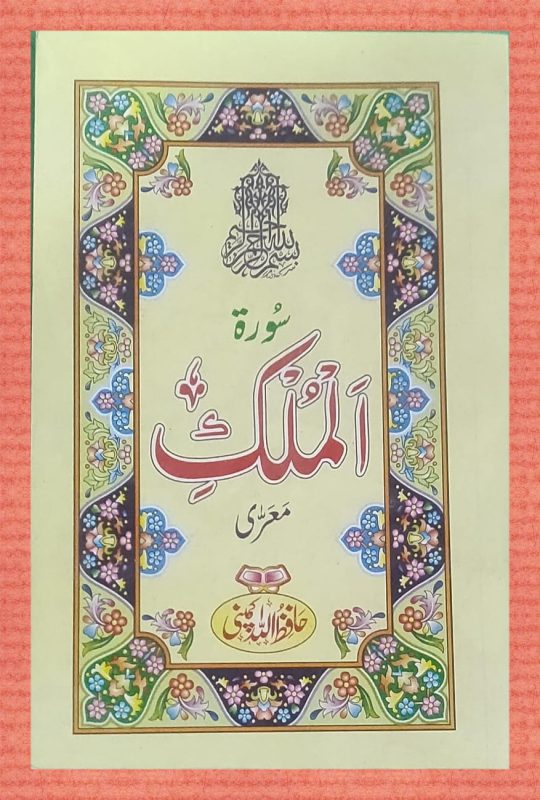 بسم الله الرحمن الرحيم
سُورَة
اَلْمُلْكِ
مَعَرّٰی
حافظ اللہ اینڈ کمپنی